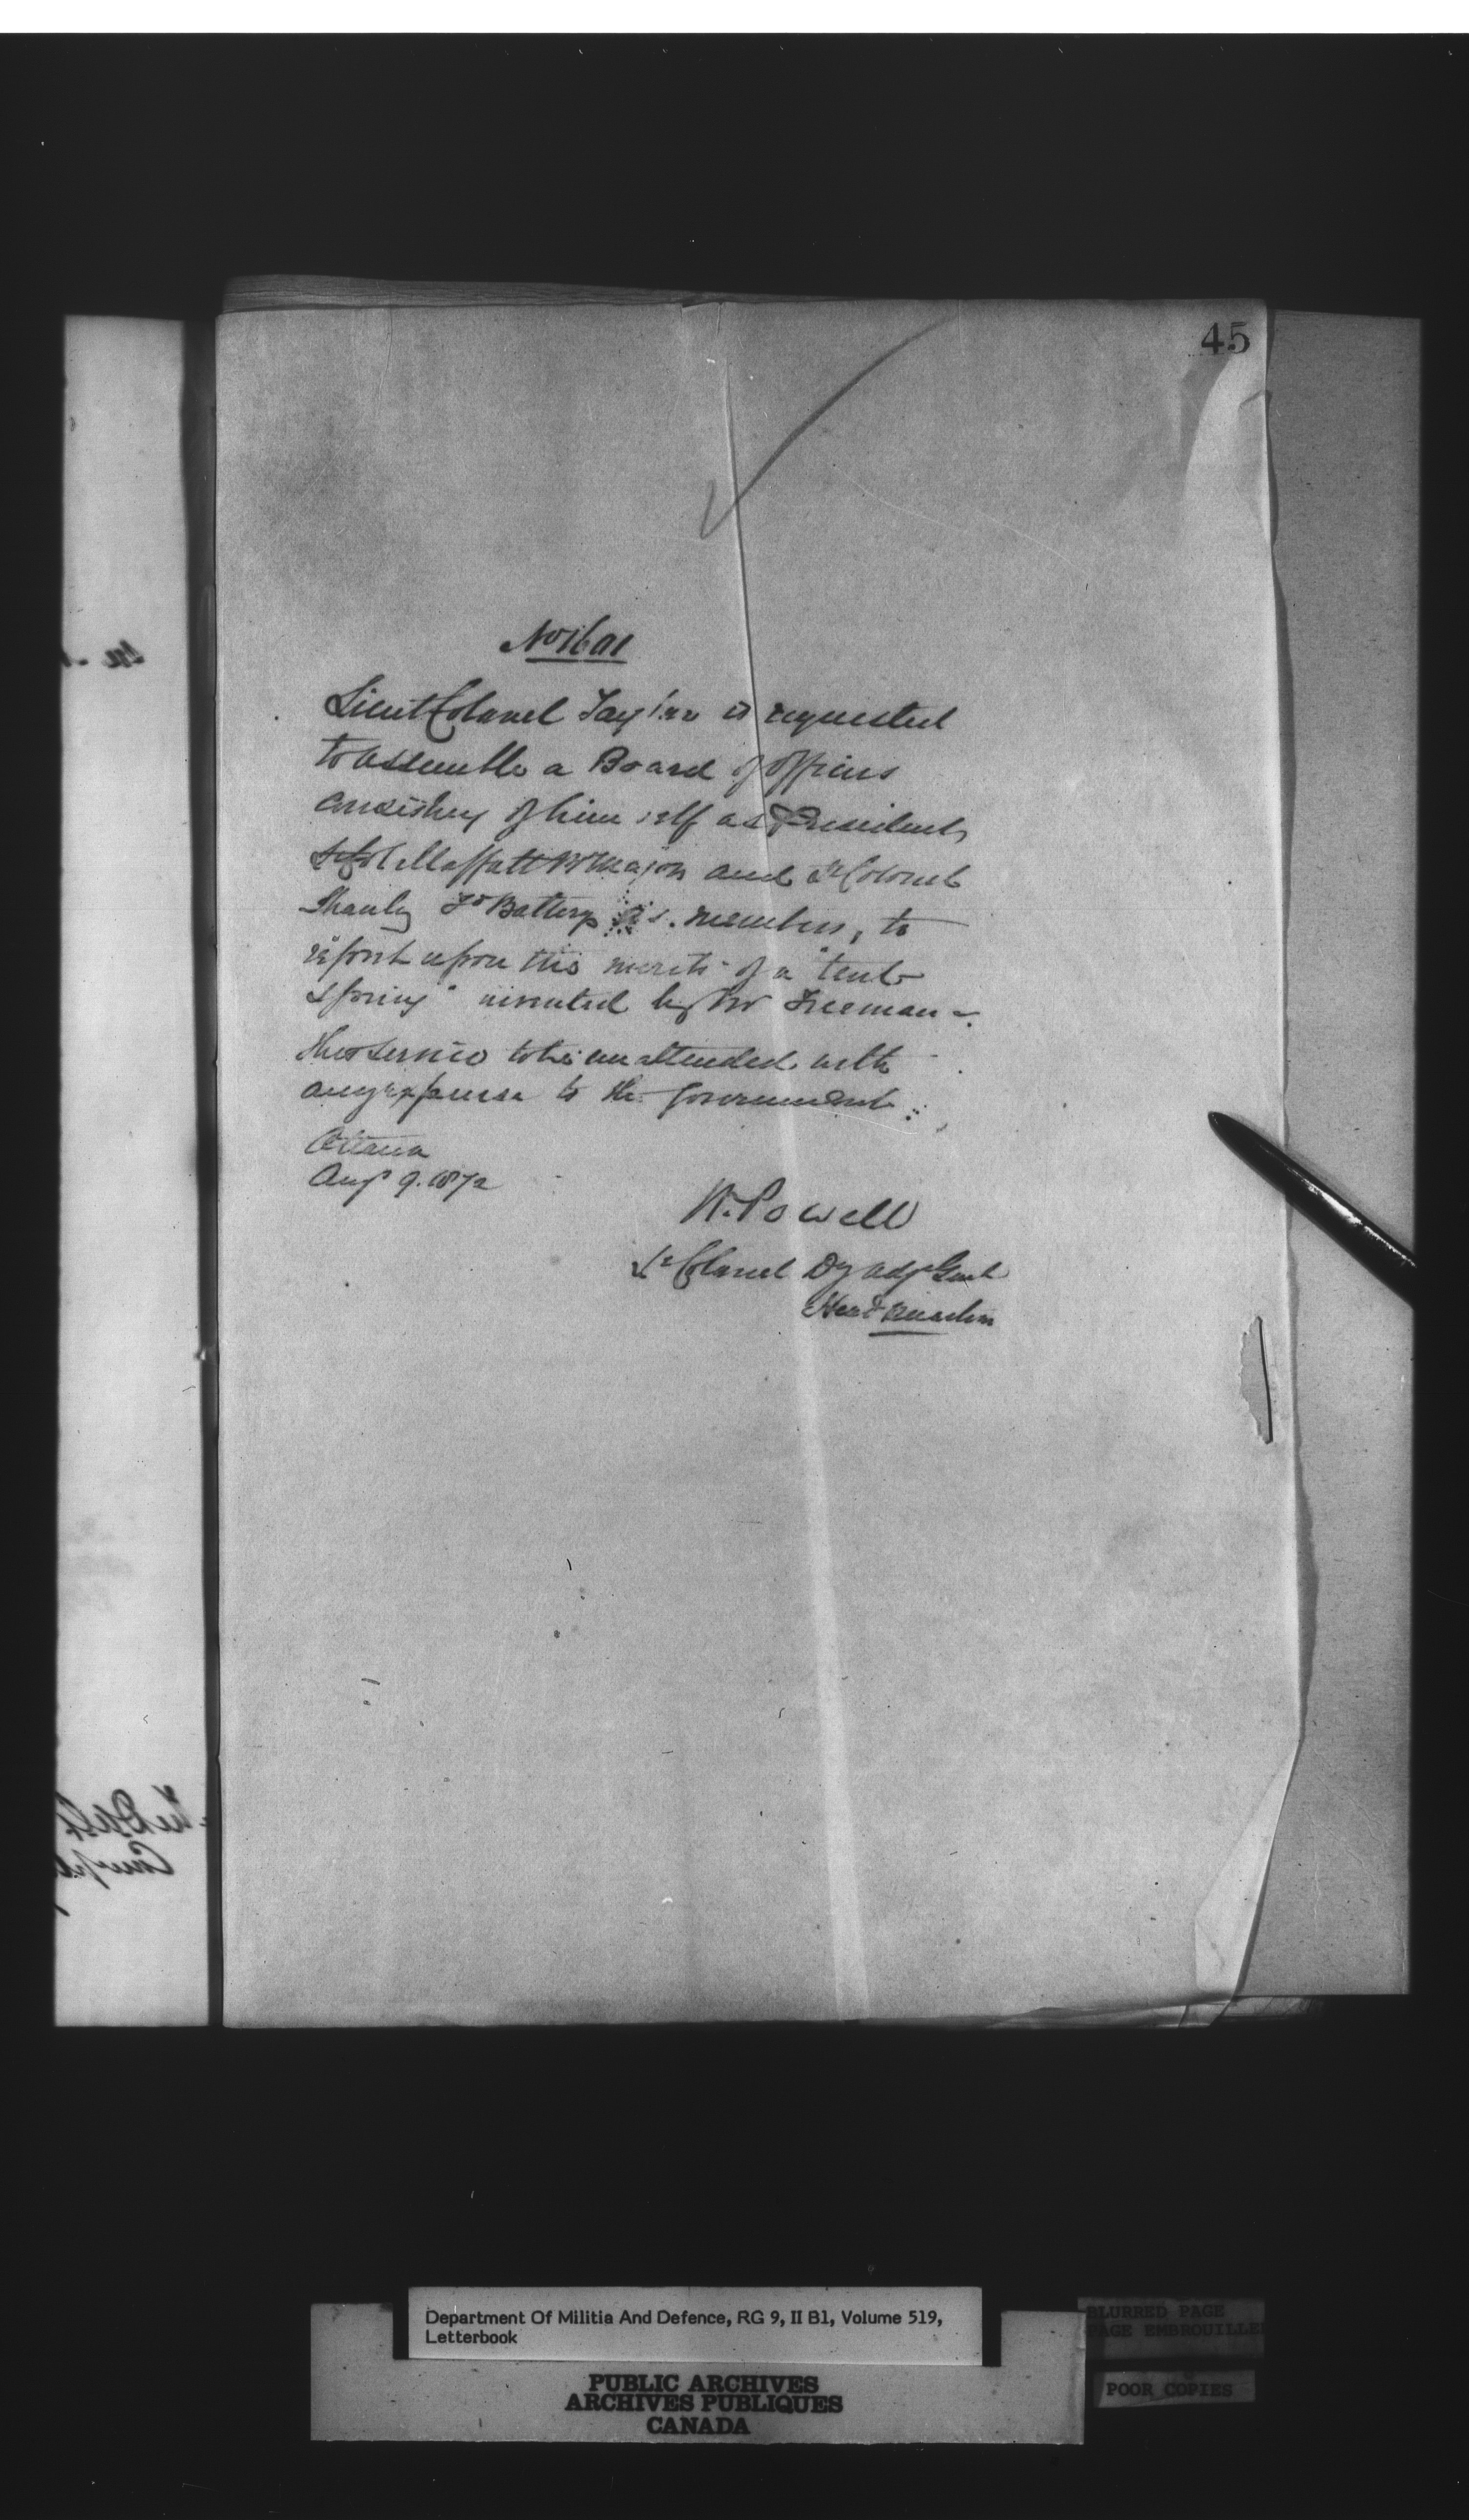 45
No 1601
Lieut Colonel Taylor is requested
to assemble a Board of officers
consisting of himself as President,
Lt Col Moffatt Br Major and Lt Colonel
Shanly Ln Battery as members, to
report upon the merits of a "tent
spring" invented by Mr Freeman -
the service to be unattended with
any expense to the Government
Ottawa
Aug 9. 1872
W. Powell
Lt Colonel Dy Adjt Genl
Head Quarters
Department Of Militia And Defence, RG 9, II B1, Volume 519,
Letterbook
PUBLIC ARCHIVES
ARCHIVES PUBLIQUES
CANADA
BLURRED PAGE
PAGE EMBROUILLEE
POOR COPIES